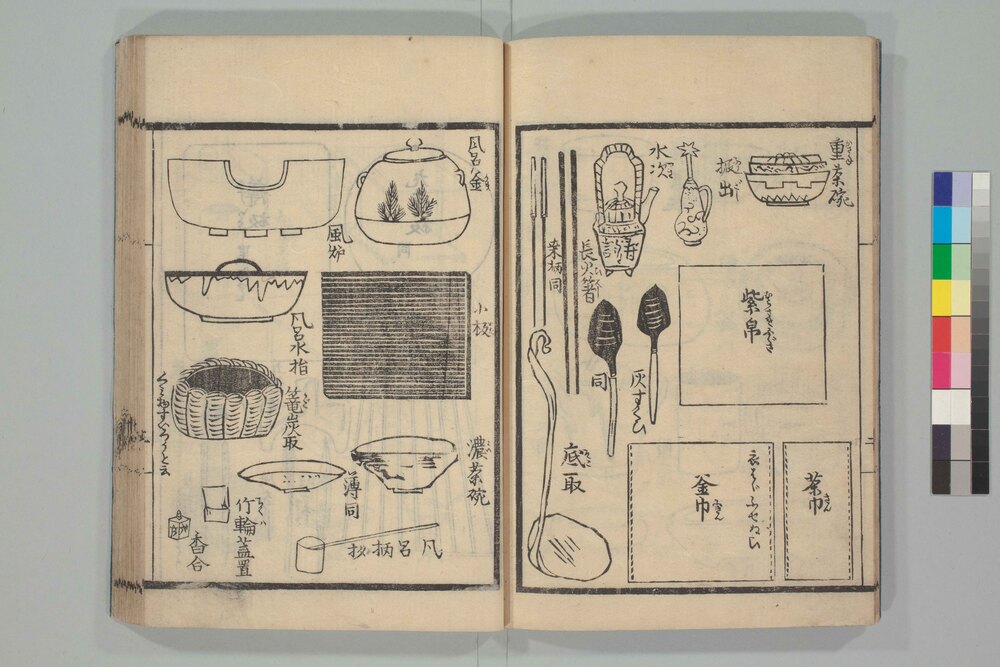 重茶碗
振出
水次
紫帛
茶巾
釜巾
長火箸
桑柄同
灰すくひ
同
底取
風呂釜
風炉
小板
風呂水指
籠炭取
濃茶碗
薄同
竹輪蓋置
香合
風呂柄杓